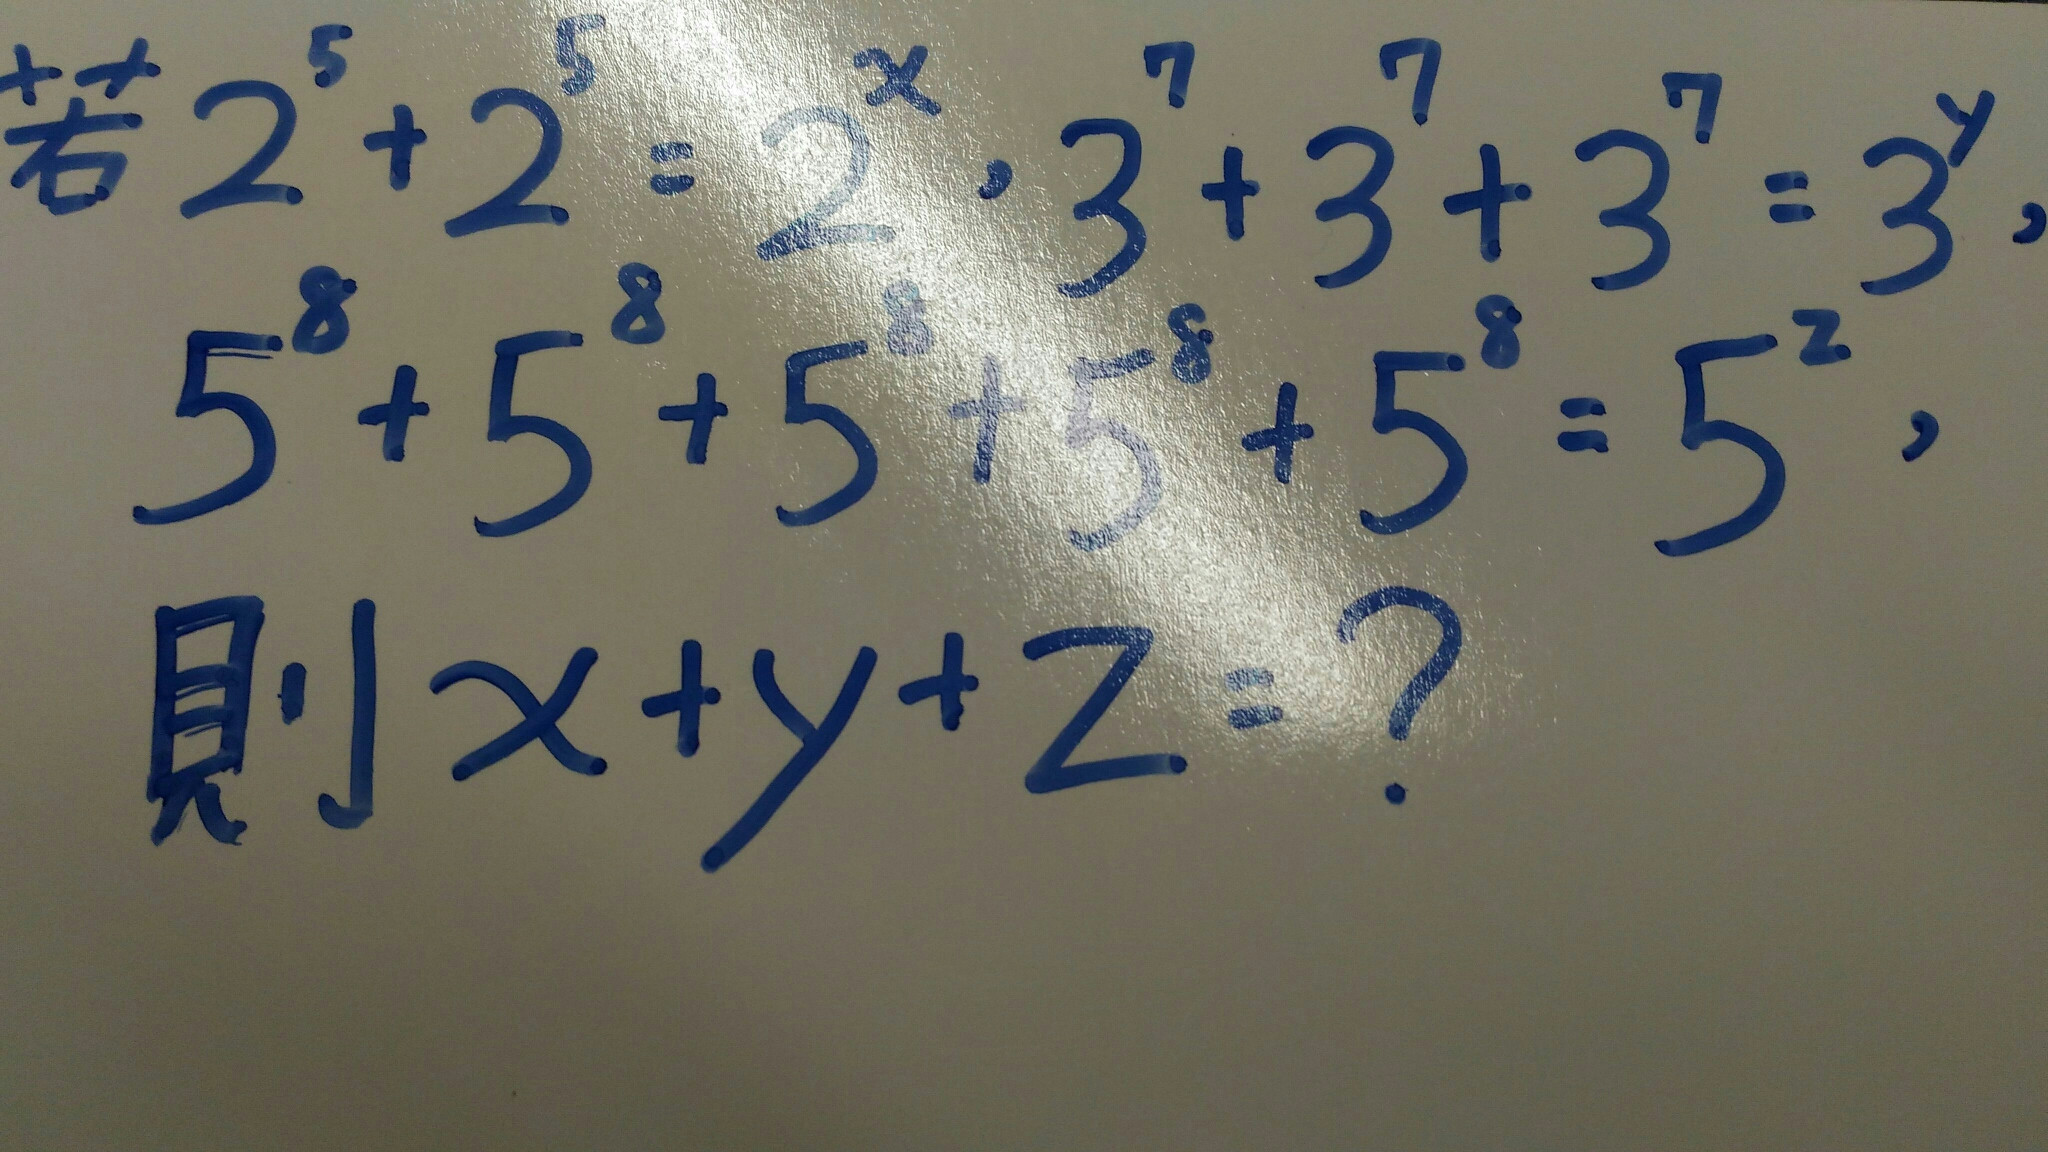 若2⁵+2⁵=2ˣ,3⁷+3⁷+3⁷=3ʸ,
5⁸+5⁸+5⁸+5⁸+5⁸=5ᶻ,
則x+y+z=?